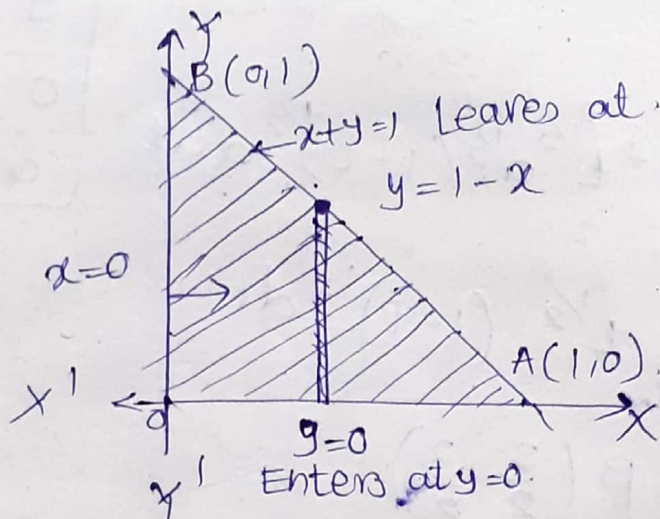 Y
B(0,1)
x+y=1 Leaves at
y=1-x
x=0
A(1,0)
X'
O
X
y=0
Y' Enters at y=0.